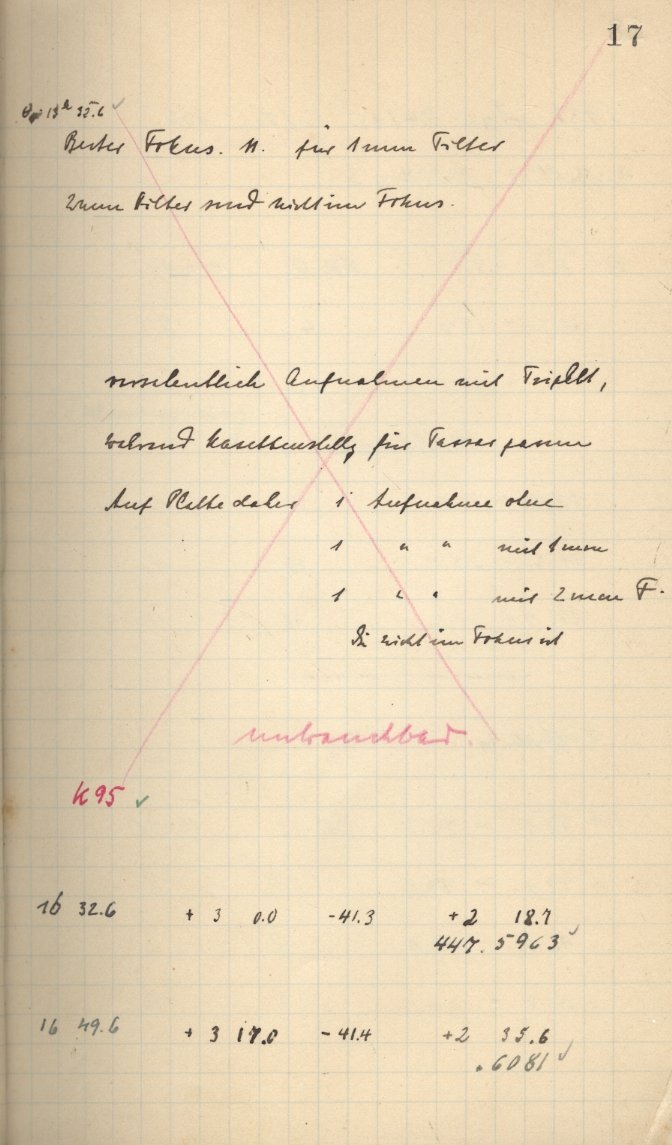 17
13h 32.6
Bester Fokus. 11. für 1mm Filter
2mm Filter sind nicht im Fokus.
versehentlich Aufnahmen mit Triplett,
während Kasettenstellg für Tessar
Auf Platte daher 1 Aufnahme ohne
1 " " mit 1mm
1 " " mit 2mm F.
die nicht im Fokus ist
unbrauchbar.
K95 ✓
16 32.6 + 3 0.0 -41.3 +2 18.7
447.5963 ✓
16 49.6 + 3 17.0 -41.4 +2 35.6
.6081 ✓